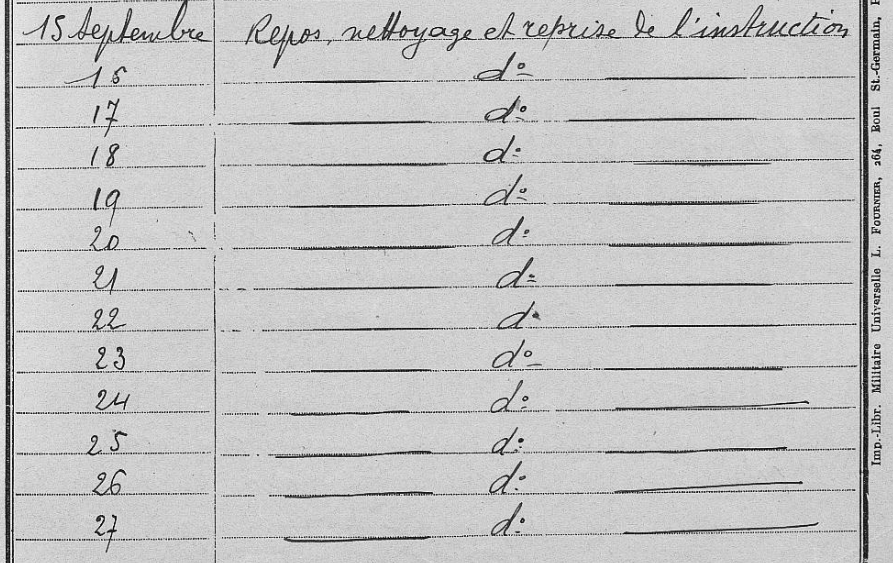 15 Septembre Repos, nettoyage et reprise de l'instruction
16 —— do ——
17 —— do ——
18 —— do ——
19 —— do ——
20 —— do ——
21 —— do ——
22 —— do ——
23 —— do ——
24 —— do ——
25 —— do ——
26 —— do ——
27 —— do ——
Imp.-Libr. Militaire Universelle L. FOURNIER, 264, Boul St.-Germain,